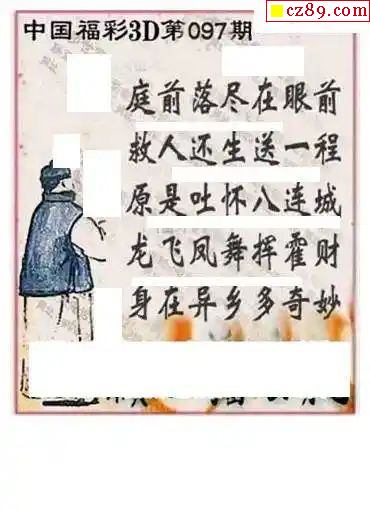 cz89.com
中国福彩3D第097期
庭前落尽在眼前
救人还生送一程
原是吐怀八连城
龙飞凤舞挥霍财
身在异乡多奇妙